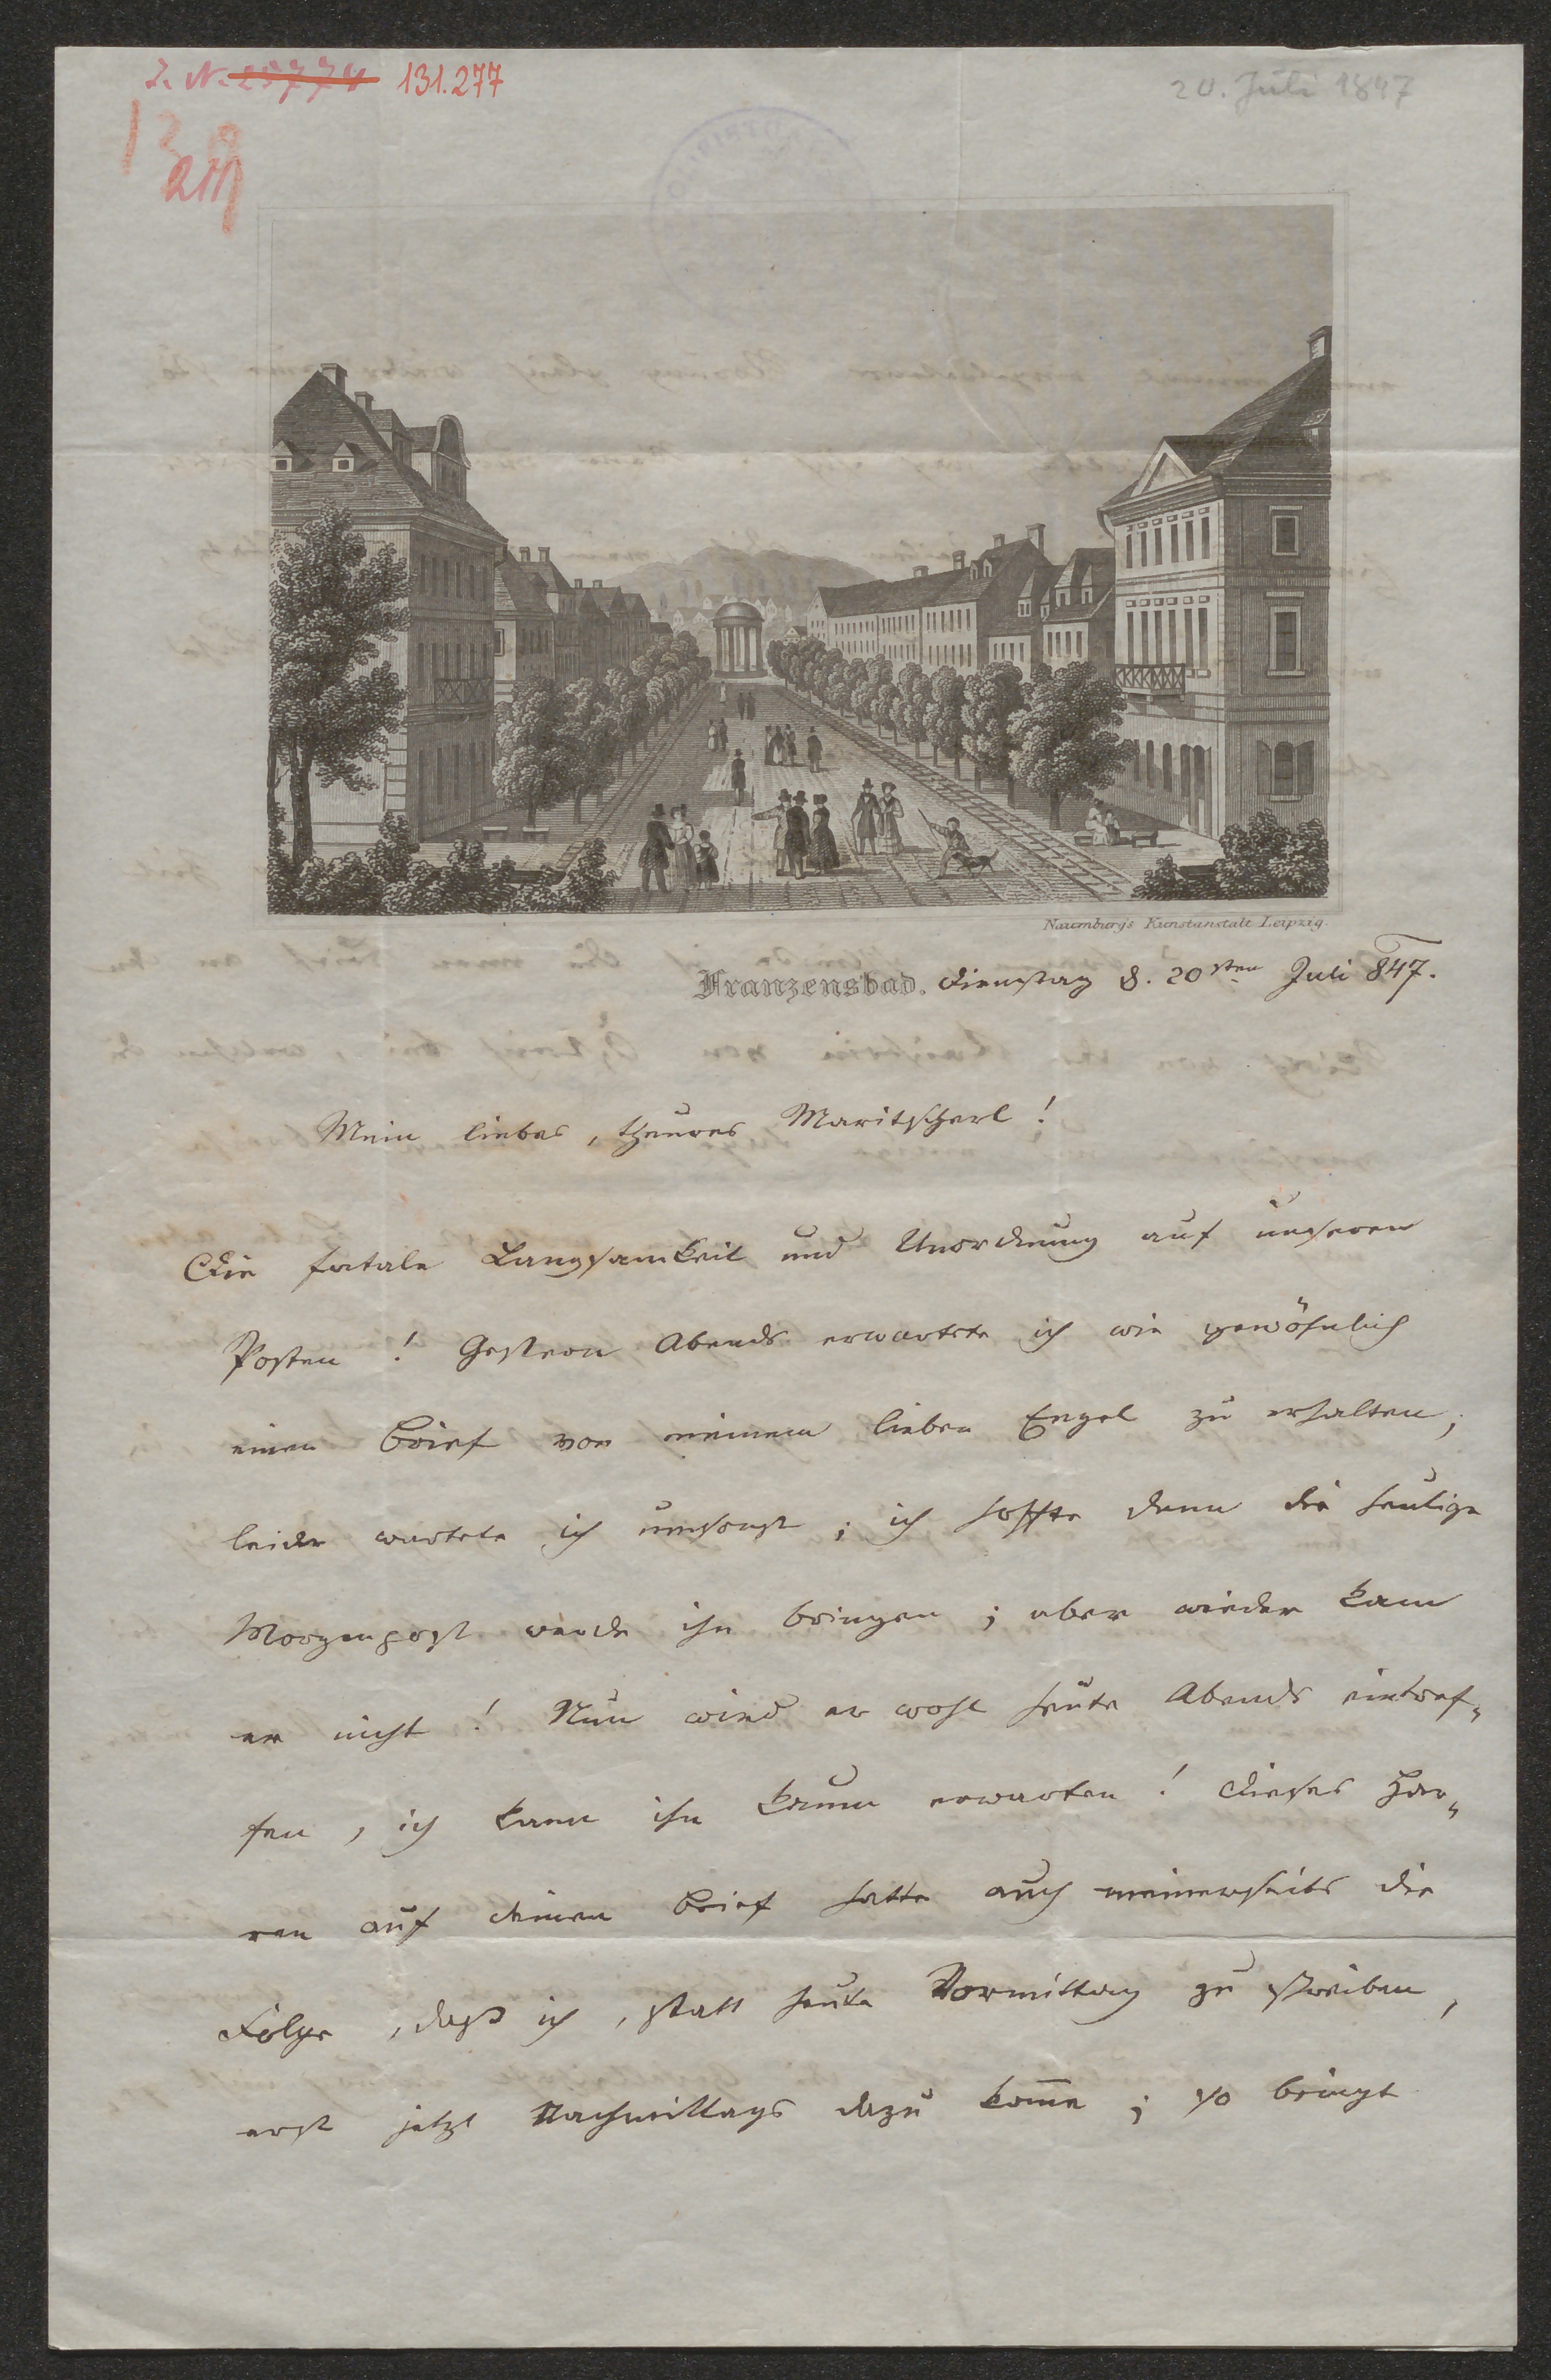 J. N. 25774 131.277
20. Juli 1847
211
Naumburg's Kunstanstalt Leipzig.
Franzensbad. Dienstag d. 20sten Juli 847.
Mein liebes, theures Maritscherl!
Die fatale Langsamkeit und Unordnung auf unseren
Posten! Gestern Abends erwartete ich wie gewöhnlich
einen Brief von meinem lieben Engel zu erhalten,
leider wartete ich umsonst; ich hoffte denn die heutige
Morgenpost werde ihn bringen; aber wieder kam
er nicht! Nun wird er wohl heute Abends eintref„
fen, ich kann ihn kaum erwarten! Dieses Har„
ren auf deinen Brief hatte auch meinerseits die
Folge, daß ich, statt heute Vormittag zu schreiben,
erst jetzt Nachmittags dazu kom̅e; so bringt